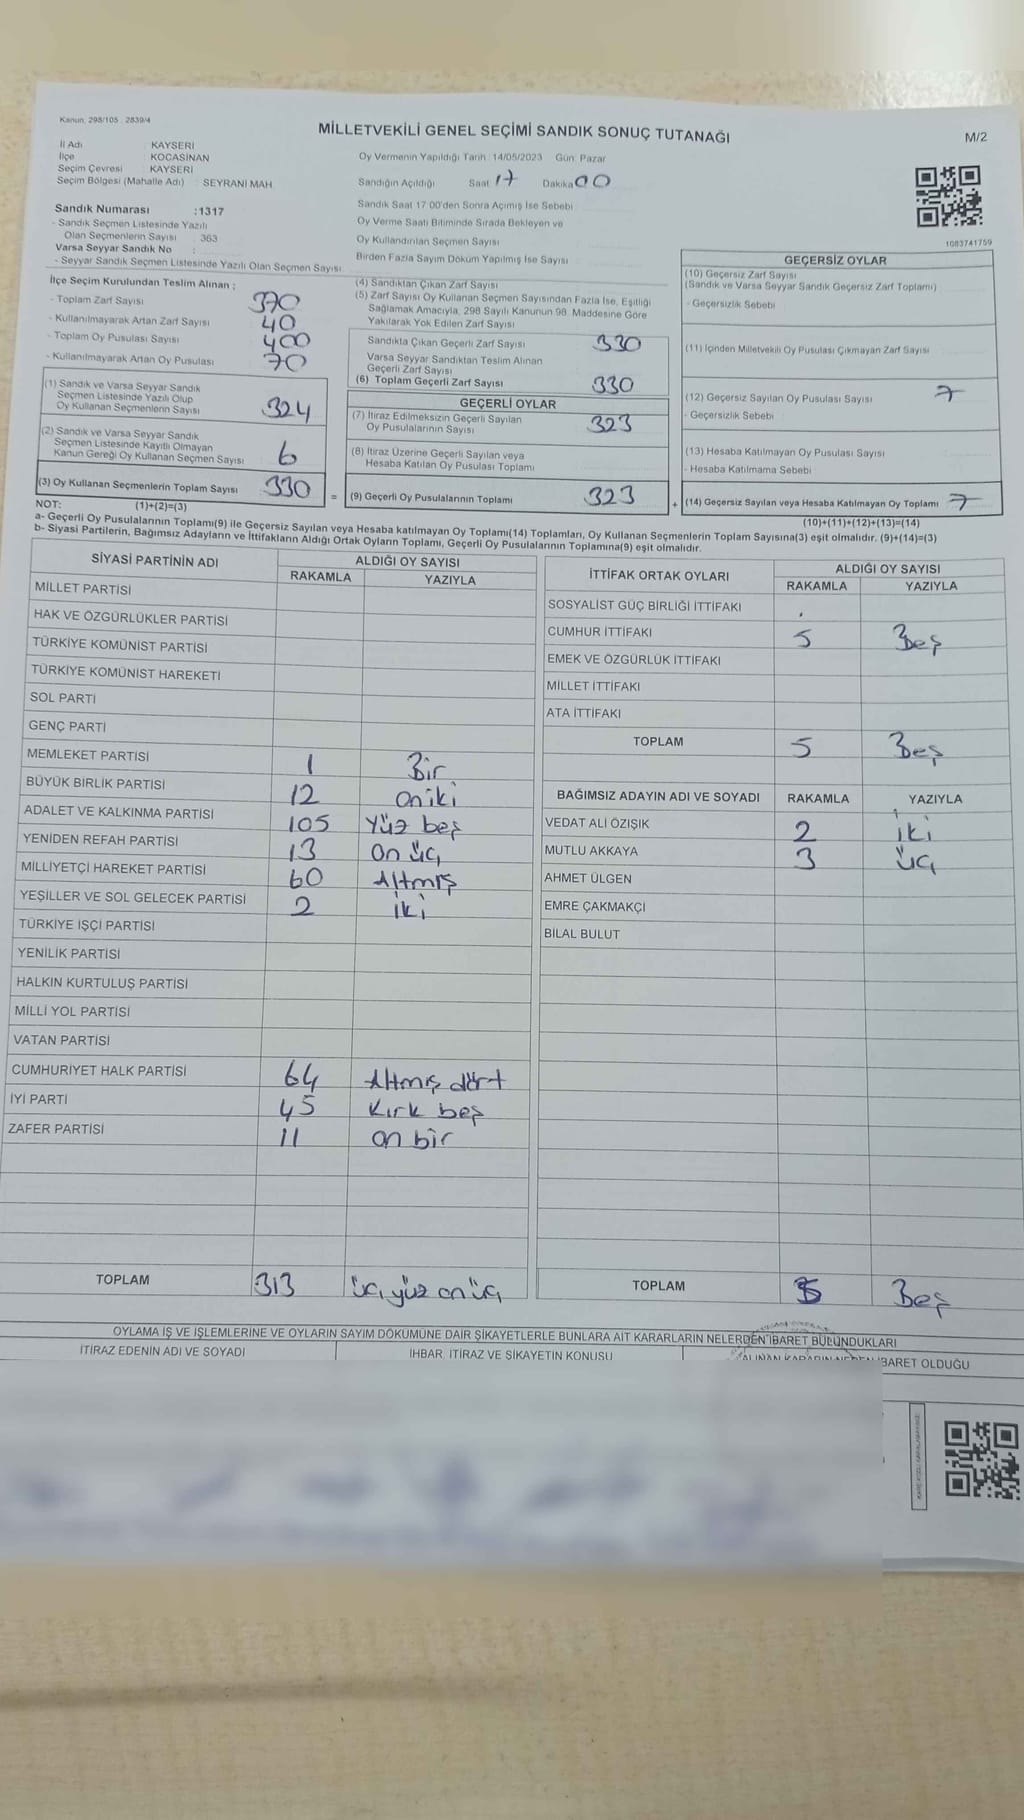 Kanun: 298/105 , 2839/4
MİLLETVEKİLİ GENEL SEÇİMİ SANDIK SONUÇ TUTANAĞI
M/2
İl Adı KAYSERİ
İlçe KOCASİNAN
Seçim Çevresi KAYSERİ
Seçim Bölgesi (Mahalle Adı) SEYRANİ MAH.
Oy Vermenin Yapıldığı Tarih :14/05/2023 Gün: Pazar
Sandığın Açıldığı Saat 17 Dakika 00
Sandık Saat 17:00'den Sonra Açılmış İse Sebebi
Oy Verme Saati Bitiminde Sırada Bekleyen ve
Oy Kullandırılan Seçmen Sayısı
Birden Fazla Sayım Döküm Yapılmış İse Sayısı
1083741759
Sandık Numarası :1317
- Sandık Seçmen Listesinde Yazılı
Olan Seçmenlerin Sayısı : 363
Varsa Seyyar Sandık No :
- Seyyar Sandık Seçmen Listesinde Yazılı Olan Seçmen Sayısı
İlçe Seçim Kurulundan Teslim Alınan ;
- Toplam Zarf Sayısı 370
- Kullanılmayarak Artan Zarf Sayısı 40
- Toplam Oy Pusulası Sayısı 400
- Kullanılmayarak Artan Oy Pusulası 70
(1) Sandık ve Varsa Seyyar Sandık
Seçmen Listesinde Yazılı Olup
Oy Kullanan Seçmenlerin Sayısı 324
(2) Sandık ve Varsa Seyyar Sandık
Seçmen Listesinde Kayıtlı Olmayan
Kanun Gereği Oy Kullanan Seçmen Sayısı 6
(3) Oy Kullanan Seçmenlerin Toplam Sayısı 330
(1)+(2)=(3)
(4) Sandıktan Çıkan Zarf Sayısı
(5) Zarf Sayısı Oy Kullanan Seçmen Sayısından Fazla İse, Eşitliği
Sağlamak Amacıyla, 298 Sayılı Kanunun 98. Maddesine Göre
Yakılarak Yok Edilen Zarf Sayısı
Sandıkta Çıkan Geçerli Zarf Sayısı 330
Varsa Seyyar Sandıktan Teslim Alınan
Geçerli Zarf Sayısı
(6) Toplam Geçerli Zarf Sayısı 330
GEÇERLİ OYLAR
(7) İtiraz Edilmeksizin Geçerli Sayılan
Oy Pusulalarının Sayısı 323
(8) İtiraz Üzerine Geçerli Sayılan veya
Hesaba Katılan Oy Pusulası Toplamı
= (9) Geçerli Oy Pusulalarının Toplamı 323
GEÇERSİZ OYLAR
(10) Geçersiz Zarf Sayısı
(Sandık ve Varsa Seyyar Sandık Geçersiz Zarf Toplamı)
- Geçersizlik Sebebi
(11) İçinden Milletvekili Oy Pusulası Çıkmayan Zarf Sayısı
(12) Geçersiz Sayılan Oy Pusulası Sayısı 7
- Geçersizlik Sebebi
(13) Hesaba Katılmayan Oy Pusulası Sayısı
- Hesaba Katılmama Sebebi
+ (14) Geçersiz Sayılan veya Hesaba Katılmayan Oy Toplamı 7
(10)+(11)+(12)+(13)=(14)
NOT:
a- Geçerli Oy Pusulalarının Toplamı(9) ile Geçersiz Sayılan veya Hesaba katılmayan Oy Toplamı(14) Toplamları, Oy Kullanan Seçmenlerin Toplam Sayısına(3) eşit olmalıdır. (9)+(14)=(3)
b- Siyasi Partilerin, Bağımsız Adayların ve İttifakların Aldığı Ortak Oyların Toplamı, Geçerli Oy Pusulalarının Toplamına(9) eşit olmalıdır.
SİYASİ PARTİNİN ADI ALDIĞI OY SAYISI
RAKAMLA YAZIYLA
MİLLET PARTİSİ
HAK VE ÖZGÜRLÜKLER PARTİSİ
TÜRKİYE KOMÜNİST PARTİSİ
TÜRKİYE KOMÜNİST HAREKETİ
SOL PARTİ
GENÇ PARTİ
MEMLEKET PARTİSİ 1 Bir
BÜYÜK BİRLİK PARTİSİ 12 on iki
ADALET VE KALKINMA PARTİSİ 105 Yüz beş
YENİDEN REFAH PARTİSİ 13 on üç
MİLLİYETÇİ HAREKET PARTİSİ 60 Altmış
YEŞİLLER VE SOL GELECEK PARTİSİ 2 iki
TÜRKİYE İŞÇİ PARTİSİ
YENİLİK PARTİSİ
HALKIN KURTULUŞ PARTİSİ
MİLLİ YOL PARTİSİ
VATAN PARTİSİ
CUMHURİYET HALK PARTİSİ 64 Altmış dört
İYİ PARTİ 45 Kırk beş
ZAFER PARTİSİ 11 on bir
TOPLAM 313 üç yüz on üç
İTTİFAK ORTAK OYLARI ALDIĞI OY SAYISI
RAKAMLA YAZIYLA
SOSYALİST GÜÇ BİRLİĞİ İTTİFAKI
CUMHUR İTTİFAKI 5 Beş
EMEK VE ÖZGÜRLÜK İTTİFAKI
MİLLET İTTİFAKI
ATA İTTİFAKI
TOPLAM 5 Beş
BAĞIMSIZ ADAYIN ADI VE SOYADI RAKAMLA YAZIYLA
VEDAT ALİ ÖZIŞIK 2 iki
MUTLU AKKAYA 3 üç
AHMET ÜLGEN
EMRE ÇAKMAKÇİ
BİLAL BULUT
TOPLAM 5 Beş
OYLAMA İŞ VE İŞLEMLERİNE VE OYLARIN SAYIM DÖKÜMÜNE DAİR ŞİKAYETLERLE BUNLARA AİT KARARLARIN NELERDEN İBARET BULUNDUKLARI
İTİRAZ EDENİN ADI VE SOYADI İHBAR, İTİRAZ VE ŞİKAYETİN KONUSU ALINAN KARARIN NEDEN İBARET OLDUĞU